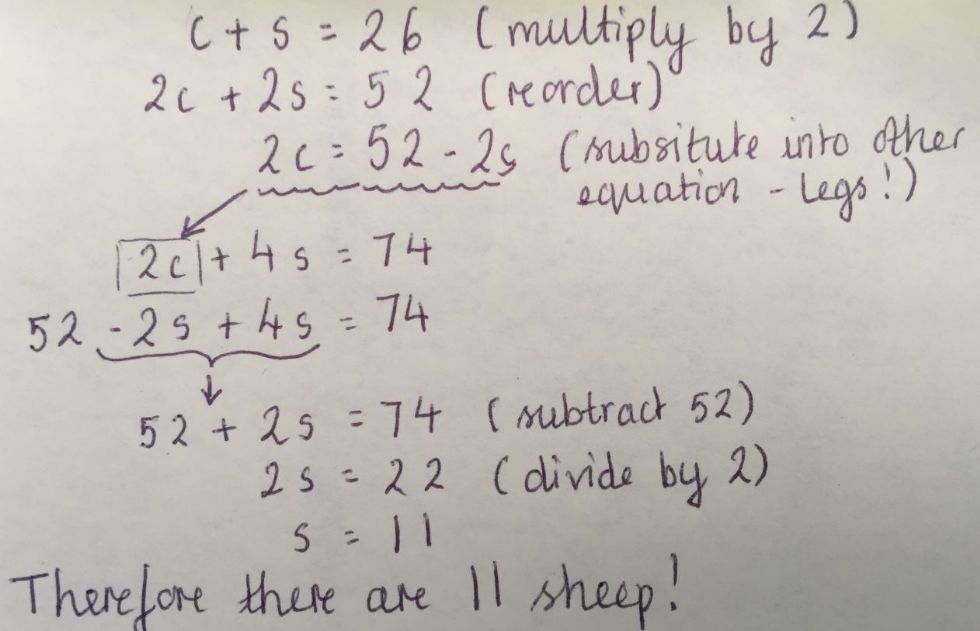 c + s = 26 (multiply by 2)
2c + 2s = 52 (reorder)
2c = 52 - 2s (subsitute into other
equation - legs!)
2c + 4s = 74
52 - 2s + 4s = 74
52 + 2s = 74 (subtract 52)
2s = 22 (divide by 2)
s = 11
Therefore there are 11 sheep!